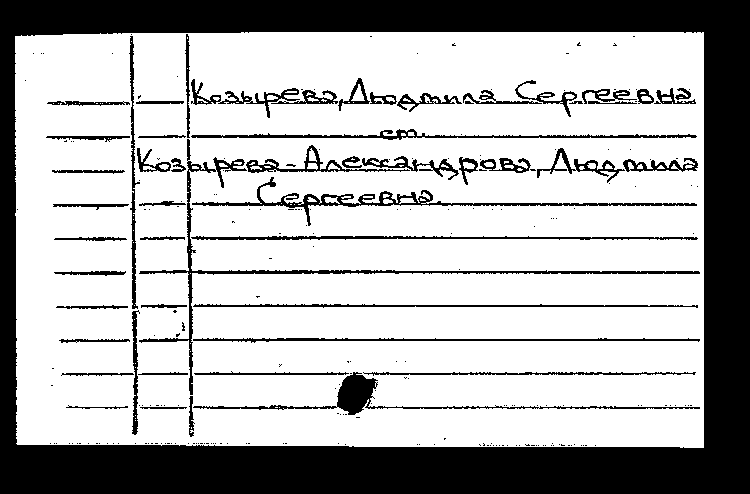 Козырева, Людмила Сергеевна
см.
Козырева-Александрова, Людмила
Сергеевна.